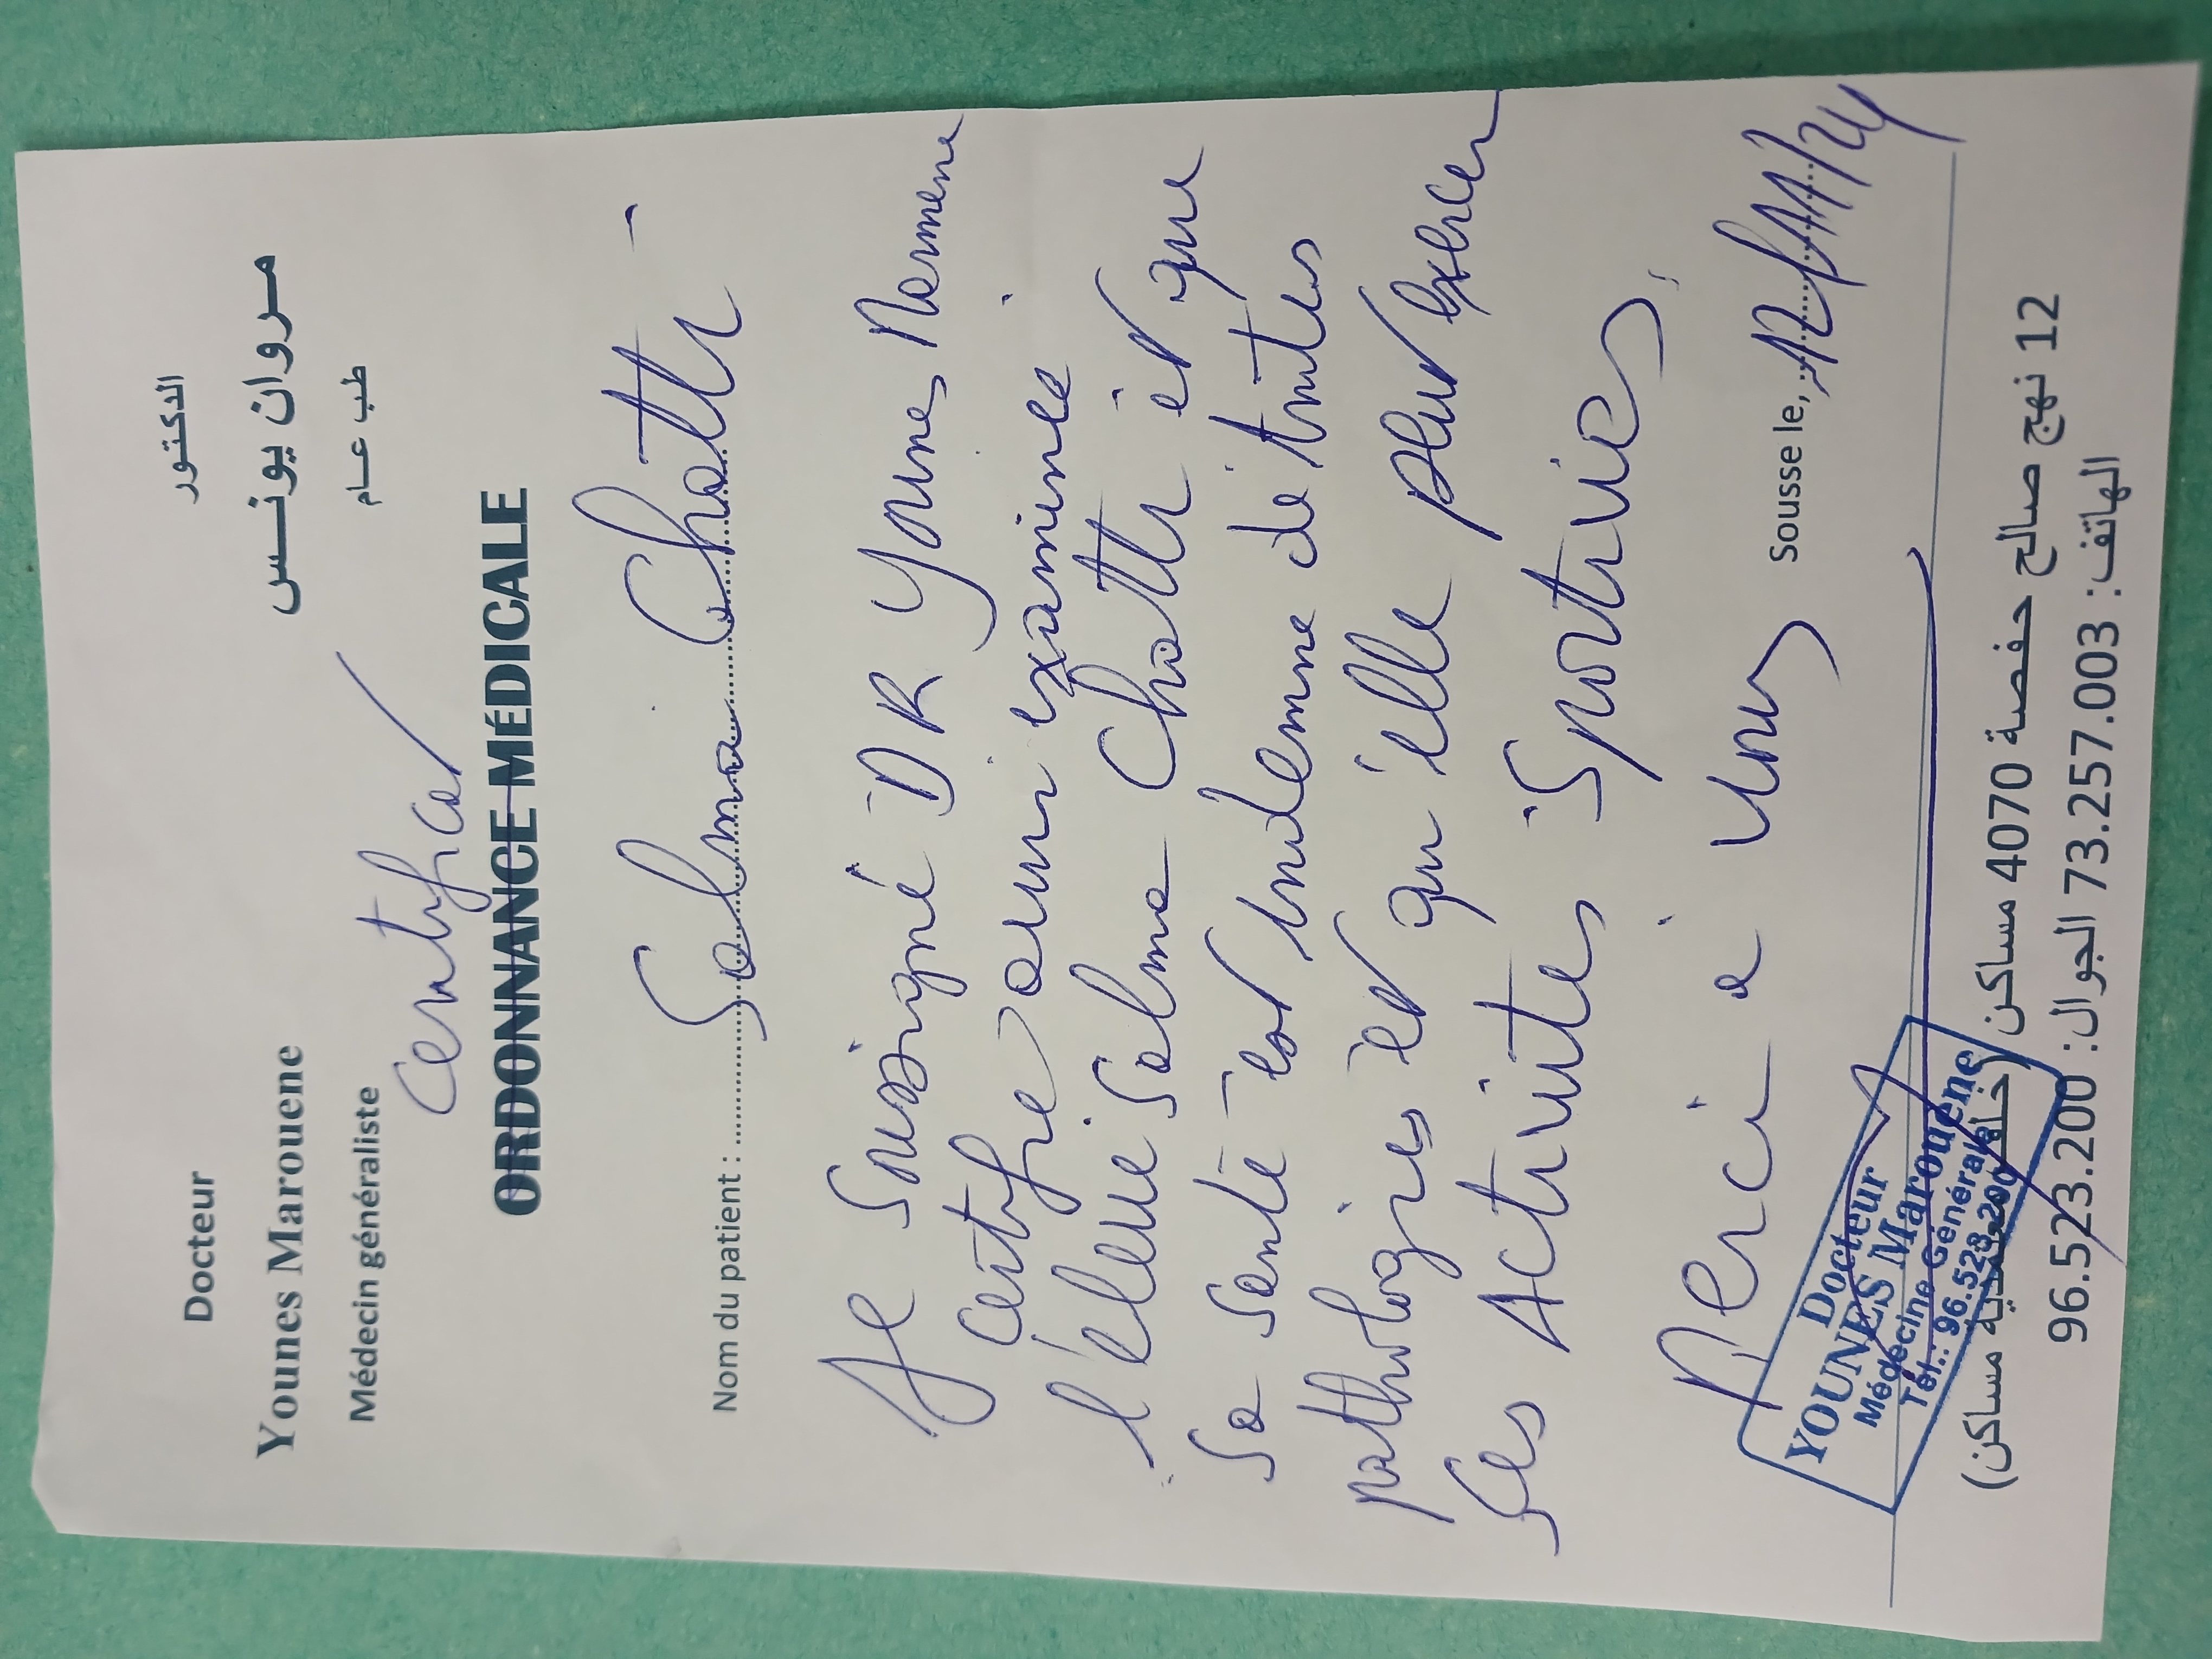 Docteur
Younes Marouene
Médecin généraliste
الدكتور
مروان يونس
طب عام
Certificat
ORDONNANCE MÉDICALE
Nom du patient : Salma Chatti
Je soussigné DR Younes
certifie avoir examinée
l'éleve Salma Chatti et que
sa santé est indemne de toutes
pathologies et qu'elle peut exercer
ses Activités Sportives
Merci a vous
Sousse le, 12/11/24
Docteur
YOUNES Marouene
Médecine Générale
Tél.: 96.523.200
12 نهج صالح حفصة 4070 مساكن (خلف مساكن)
الهاتف: 73.257.003 الجوال: 96.523.200